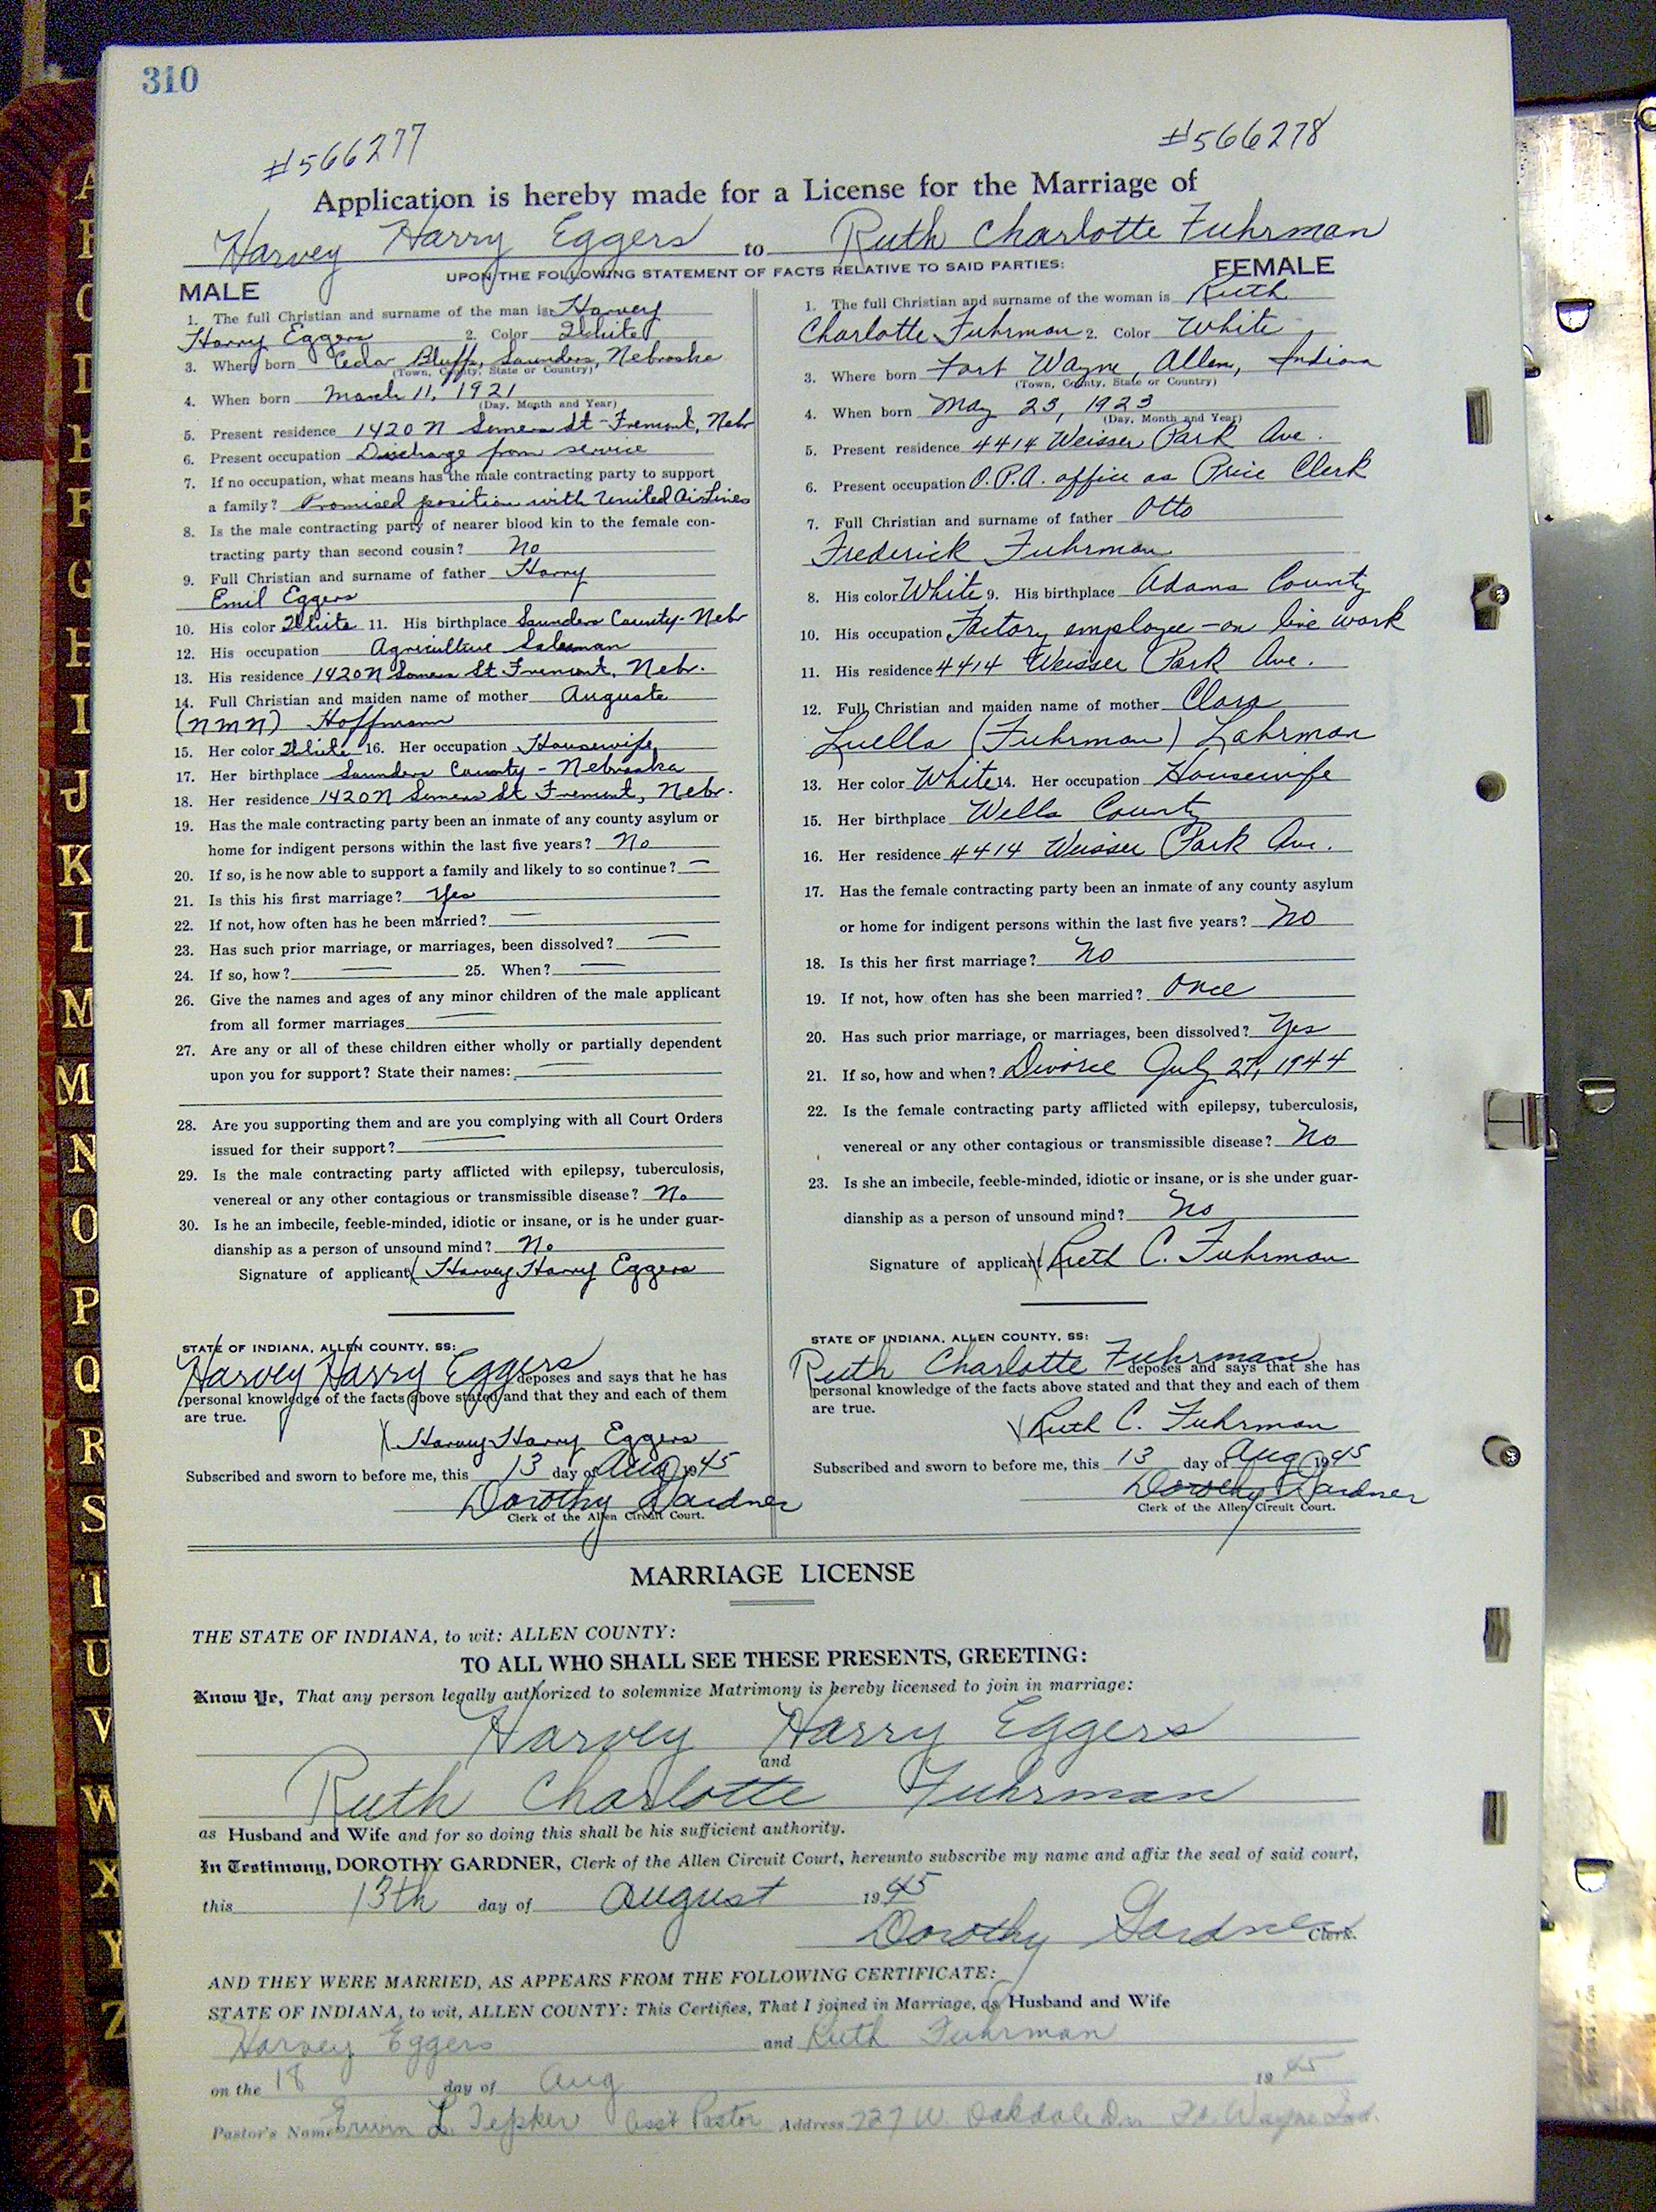 310
#566277
#566278
Application is hereby made for a License for the Marriage of
Harvey Harry Eggers to Ruth Charlotte Fuhrman
UPON THE FOLLOWING STATEMENT OF FACTS RELATIVE TO SAID PARTIES:
MALE
1. The full Christian and surname of the man is: Harvey
Harry Eggers 2. Color White
3. Where born Cedar Bluffs, Saunders, Nebraska
(Town, County, State or Country)
4. When born March 11, 1921
(Day, Month and Year)
5. Present residence 1420 N Somers St - Fremont, Nebr
6. Present occupation Discharge from service
7. If no occupation, what means has the male contracting party to support
a family? Promised position with United AirLines
8. Is the male contracting party of nearer blood kin to the female con-
tracting party than second cousin? No
9. Full Christian and surname of father Harry
Emil Eggers
10. His color White 11. His birthplace Saunders County - Nebr
12. His occupation Agriculture Salesman
13. His residence 1420 N Somers St Fremont, Nebr.
14. Full Christian and maiden name of mother Auguste
(NMN) Hoffmann
15. Her color White 16. Her occupation Housewife
17. Her birthplace Saunders County - Nebraska
18. Her residence 1420 N Somers St Fremont, Nebr.
19. Has the male contracting party been an inmate of any county asylum or
home for indigent persons within the last five years? No
20. If so, is he now able to support a family and likely to so continue? —
21. Is this his first marriage? Yes
22. If not, how often has he been married? —
23. Has such prior marriage, or marriages, been dissolved? —
24. If so, how? — 25. When? —
26. Give the names and ages of any minor children of the male applicant
from all former marriages —
27. Are any or all of these children either wholly or partially dependent
upon you for support? State their names: —
28. Are you supporting them and are you complying with all Court Orders
issued for their support? —
29. Is the male contracting party afflicted with epilepsy, tuberculosis,
venereal or any other contagious or transmissible disease? No
30. Is he an imbecile, feeble-minded, idiotic or insane, or is he under guar-
dianship as a person of unsound mind? No
Signature of applicant Harvey Harry Eggers
STATE OF INDIANA, ALLEN COUNTY, SS:
Harvey Harry Eggers deposes and says that he has
personal knowledge of the facts above stated and that they and each of them
are true.
Harvey Harry Eggers
Subscribed and sworn to before me, this 13 day of Aug 1945
Dorothy Gardner
Clerk of the Allen Circuit Court.
FEMALE
1. The full Christian and surname of the woman is Ruth
Charlotte Fuhrman 2. Color White
3. Where born Fort Wayne, Allen, Indiana
(Town, County, State or Country)
4. When born May 23, 1923
(Day, Month and Year)
5. Present residence 4414 Weisser Park Ave.
6. Present occupation O.P.A. office as Price Clerk
7. Full Christian and surname of father Otto
Frederick Fuhrman
8. His color White 9. His birthplace Adams County
10. His occupation Factory employee - on line work
11. His residence 4414 Weisser Park Ave.
12. Full Christian and maiden name of mother Clara
Luella (Fuhrman) Lahrman
13. Her color White 14. Her occupation Housewife
15. Her birthplace Wells County
16. Her residence 4414 Weisser Park Ave.
17. Has the female contracting party been an inmate of any county asylum
or home for indigent persons within the last five years? No
18. Is this her first marriage? No
19. If not, how often has she been married? Once
20. Has such prior marriage, or marriages, been dissolved? Yes
21. If so, how and when? Divorce July 27, 1944
22. Is the female contracting party afflicted with epilepsy, tuberculosis,
venereal or any other contagious or transmissible disease? No
23. Is she an imbecile, feeble-minded, idiotic or insane, or is she under guar-
dianship as a person of unsound mind? No
Signature of applicant Ruth C. Fuhrman
STATE OF INDIANA, ALLEN COUNTY, SS:
Ruth Charlotte Fuhrman deposes and says that she has
personal knowledge of the facts above stated and that they and each of them
are true.
Ruth C. Fuhrman
Subscribed and sworn to before me, this 13 day of Aug 1945
Dorothy Gardner
Clerk of the Allen Circuit Court.
MARRIAGE LICENSE
THE STATE OF INDIANA, to wit: ALLEN COUNTY:
TO ALL WHO SHALL SEE THESE PRESENTS, GREETING:
Know Ye, That any person legally authorized to solemnize Matrimony is hereby licensed to join in marriage:
Harvey Harry Eggers
and
Ruth Charlotte Fuhrman
as Husband and Wife and for so doing this shall be his sufficient authority.
In Testimony, DOROTHY GARDNER, Clerk of the Allen Circuit Court, hereunto subscribe my name and affix the seal of said court,
this 13th day of August 1945
Dorothy Gardner Clerk.
AND THEY WERE MARRIED, AS APPEARS FROM THE FOLLOWING CERTIFICATE:
STATE OF INDIANA, to wit, ALLEN COUNTY: This Certifies, That I joined in Marriage, as Husband and Wife
Harvey Eggers and Ruth Fuhrman
on the 18 day of Aug 1945
Pastor's Name Erwin L. Tepker Asst Pastor Address 727 W. Oakdale Dr. Ft. Wayne Ind.
A
F
C
D
E
F
G
H
I
J
K
L
M
M
N
O
P
Q
R
S
T
U
V
W
X
Y
Z